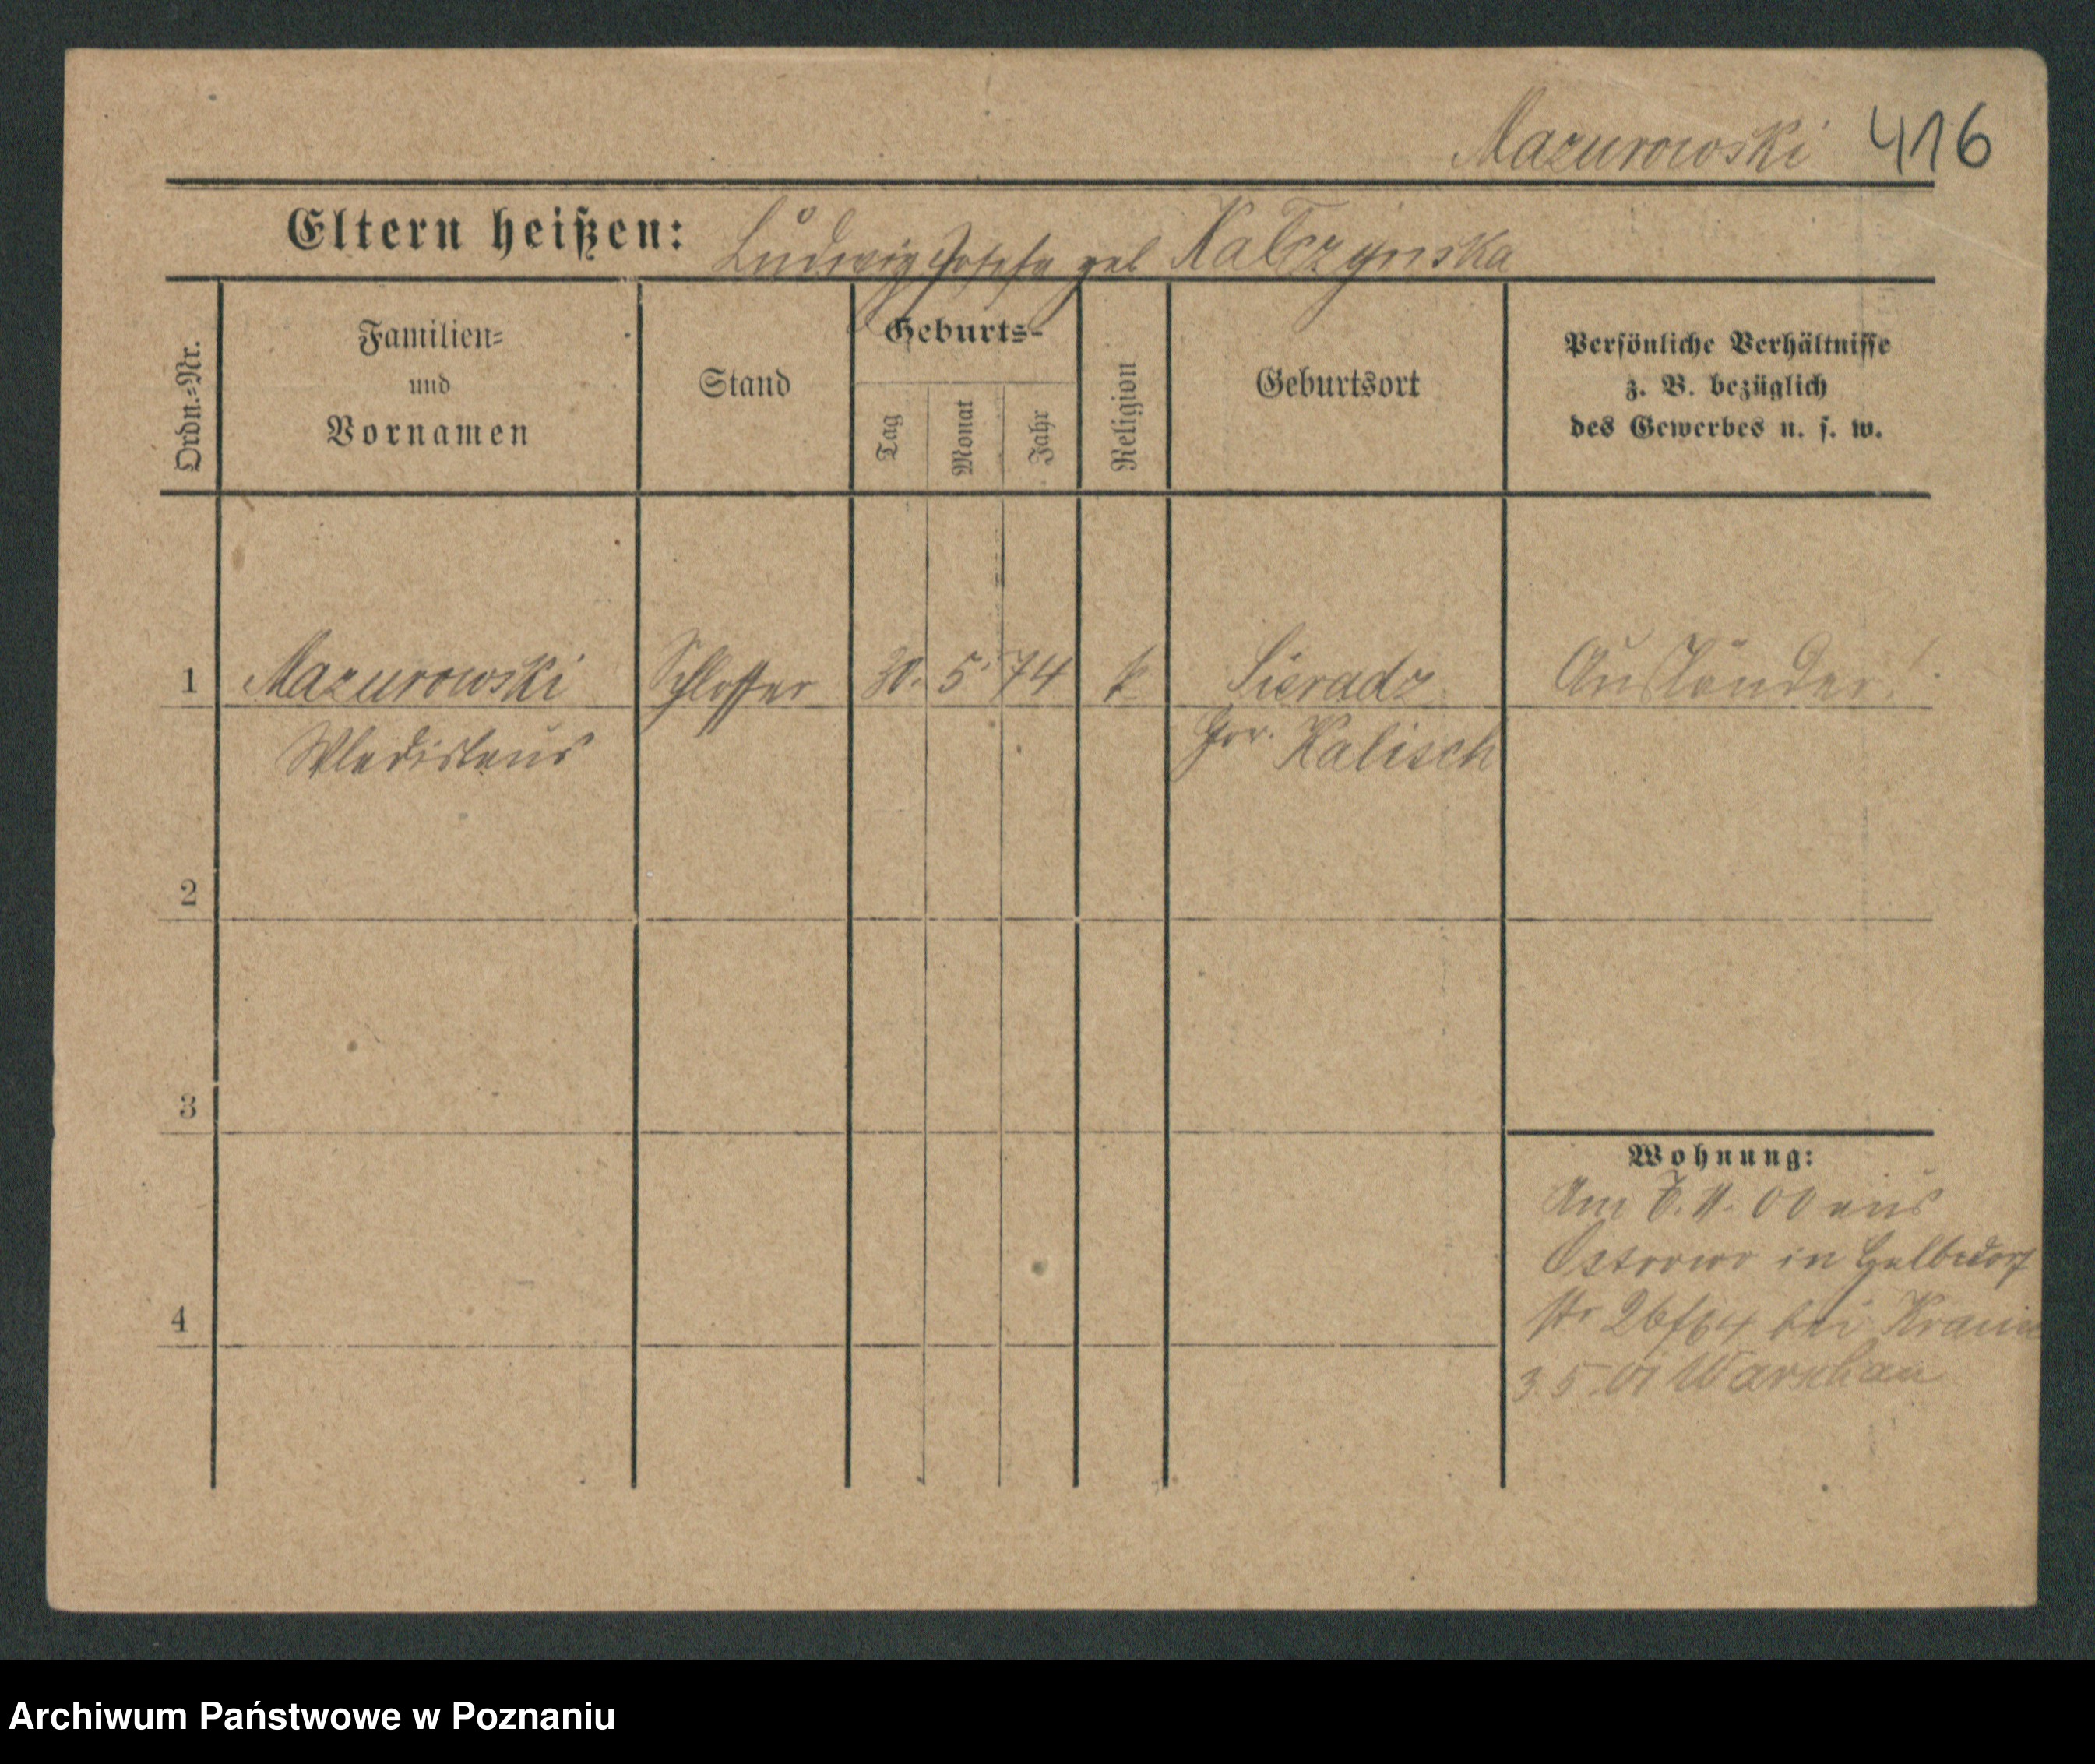 Mazurowski 416
Eltern heißen: Ludwig Josefa geb
Ordn.=Nr.
Familien=
und
Vornamen
Stand
Geburts-
Tag
Monat
Jahr
Religion
Geburtsort
Persönliche Verhältnisse
z. B. bezüglich
des Gewerbes u. s. w.
1 Mazurowski Schlosser 30. 5. 74 k Sieradz Ausländer!
Wladislaus Gov. Kalisch
2
3
4
Wohnung:
Am 11. 00 aus
Ostrowo in
str 26 bei
3.5.01 Warschau
Archiwum Państwowe w Poznaniu